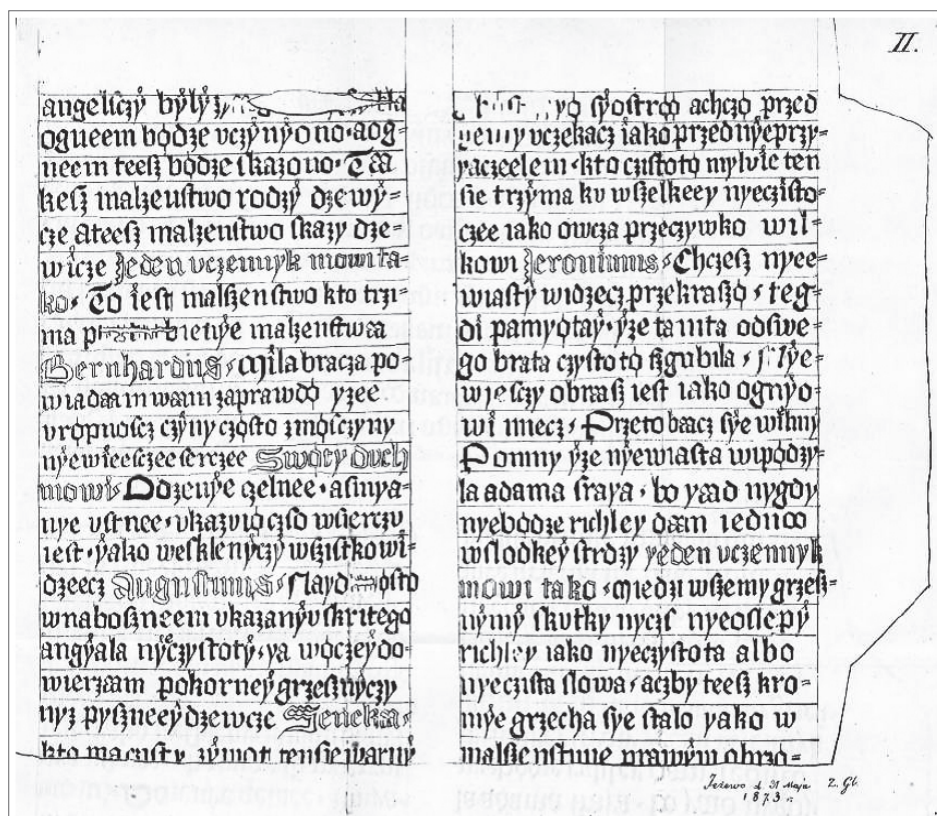 II.
angelsczÿ bÿlÿ
ogneem bǫdze vczÿnÿono · aog-
neem teesz bǫdze skazono · Taa
kesz malzenstwo rodzÿ dzewÿ-
cze ateesz malzenstwo skazy dze-
wicze Jeden vczennyk mowi ta-
ko · To iest malszenstwo kto trzi-
ma malzenstwaa
Bernhardus · Mÿla bracza po-
wiadaam waam zaprawdǫ yzee
vropnoscz czÿny czǫsto zmÿsczyny
nÿewieesczee serczee Swǫty duch
mowi · Odzenÿe czelnee · asmya-
nye vstnee · vkazvió czso wsierczv
iest · ÿako wesklenÿczÿ wszistko wi-
dzeecz Augustinus · Naÿd
wnaboszneem vkazanÿv skritego
angÿala nÿeczystotÿ · ya wǫczeÿ do-
wierzam pokorneÿ grzesznÿczy
nyz pyszneeÿ dzewcze Seneka ·
kto ma czysty zÿwot ten sie
yo sÿostrǫ achczǫ przed
nemy vczekacz iako przed nÿeprzy-
yaczeelem · kto czstotǫ mylvie ten
sie trzÿma kv wszelkeey nyeczisto-
czee iako owcza przeczywko wil-
kowi Jeronimus · Chczesz nyee-
wiasty widzecz przekraszǫ · teg-
di pamyǫtaÿ · ÿze ta ista odswe-
go brata czystotǫ szgubila · Nÿe-
wiesczy obrasz iest iako ognÿo-
wi miecz · Przeto baacz sÿe wÿnny
Pomny ÿze nyewiasta wipǫdzy-
la adama sraya · bo yaad nygdy
nyebǫdze richley daan iednoo
wslodkeÿ strdzy yeden vczennyk
mowi tako · Miedzi wszemy grzesz-
nÿmÿ skutky nyczs nyeoslepÿ
richley iako nyeczystota albo
nyeczista slowa · aczby teesz kro-
mÿe grzecha sÿe stalo yako w
malszenstwie prawÿm obrzǫ-
Jeżewo d. 31 Maja
1873.
Z. Gl.